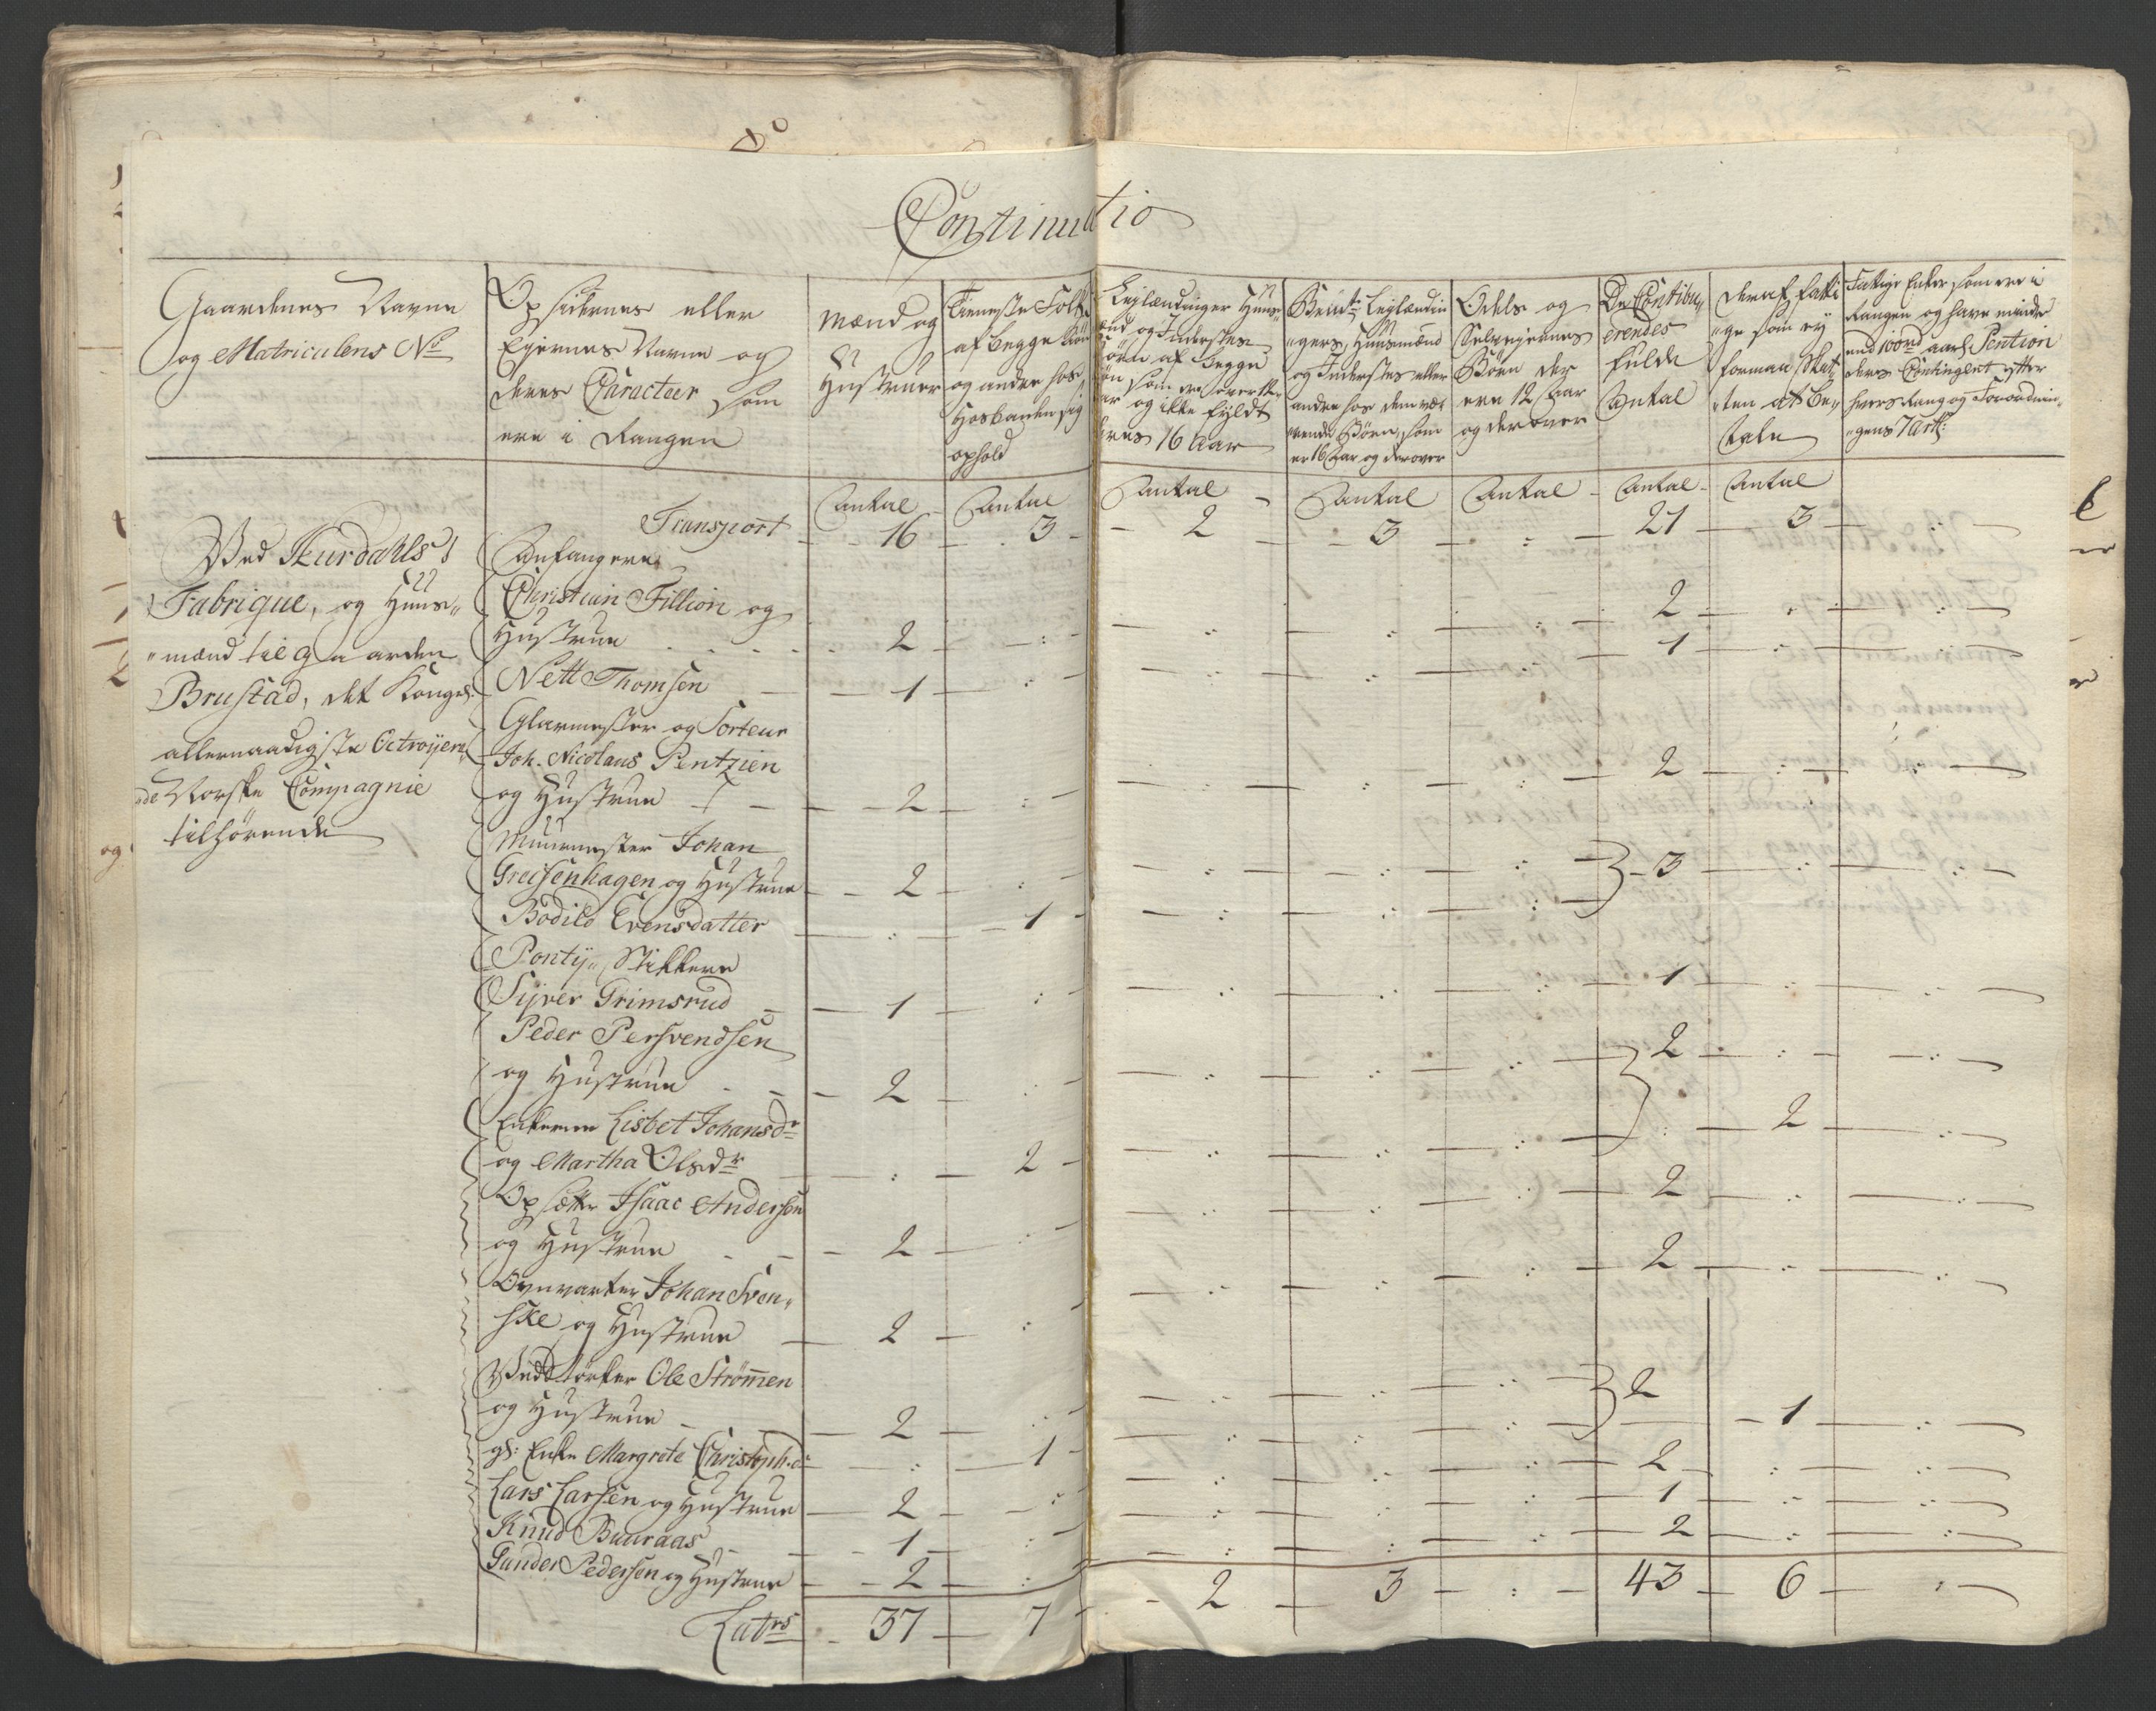 Continuatio
Gaardenes Navne
og Matriculens No
Opsidernes eller
Ejernes Navne og
deres Caracteer som
ere i Rangen
Mænd og
Hustruer
Tieneste Folk
af begge Kiøn
og andre hos
Hosbonden sig
ophold
Leylændinger Huus¬
mænd og Inderstes
Børn af begge
som ere over
og ikke fyldt
deres 16 Aar
Bemte Leylændin
"gers, Huusmænd
og Inderstes eller
andre hos dem væ¬
rende Børn, som
er 16 Aar og derover
Odels og
Selvejernes
Børn der
ere 12 Aar
og derover
De Contibu„
erendes
fulde
Antal
Deraf fatti
"ge som ey
formaa Skat¬
"ten at be„
tale
Fattige Enker som ere i
Rangen og have mindre
end 100rd aarl: Pention
deres Contingent efter
hvers Rang og Forordnin„
"gens 7 Art:
Antal Antal Antal Antal Antal Antal Antal
Transport 16 3 2 3 : 21 3 :
Ved Hurdahls
Fabrique, og Huus„
"mænd til Gaarden
Brustad, det Kongel:
allernaadigste Octroyere„
de Norske Compagnie
tilhørende
Anfangere
Christian Fillion og
Hustrue 2 : : : : 2 : :
Nett Thomsen 1 : : : : 1 : :
Glarmester og Sorteur
Joh. Nicolaus Pentzien
og Hustrue 2 : : : : 2 : :
Muurmester Johan
Greisenhagen og Hustrue 2 : : : : 3 : :
Bodild Evensdatter : 1 : : :
Ponty„ Stikkere
Syver Grimsrud 1 : : : : 1 : :
Peder Persvendsen
og Hustrue 2 : : : : 2 : :
Enkerne Lisbet Johansdr
og Martha Olsdr : 2 : : : : 2 :
Opsætter Isaac Andersen
og Hustrue 2 : : : : 2 : :
Ovnvarter Johan Sven„
ske og Hustrue 2 : : : : 2 : :
Vedtørker Ole Strømmen
og Hustrue 2 : : : : 2
gl: Enke Margrete Christoph.dr : 1 : : : 1 :
Lars Larsen og Hustrue 2 : : : : 2 : :
Knud Buuraas 1 : : : : 1 : :
Gunder Pedersen og Hustrue 2 : : : : 2 : :
Latrs 37 7 2 3 : 43 6 :